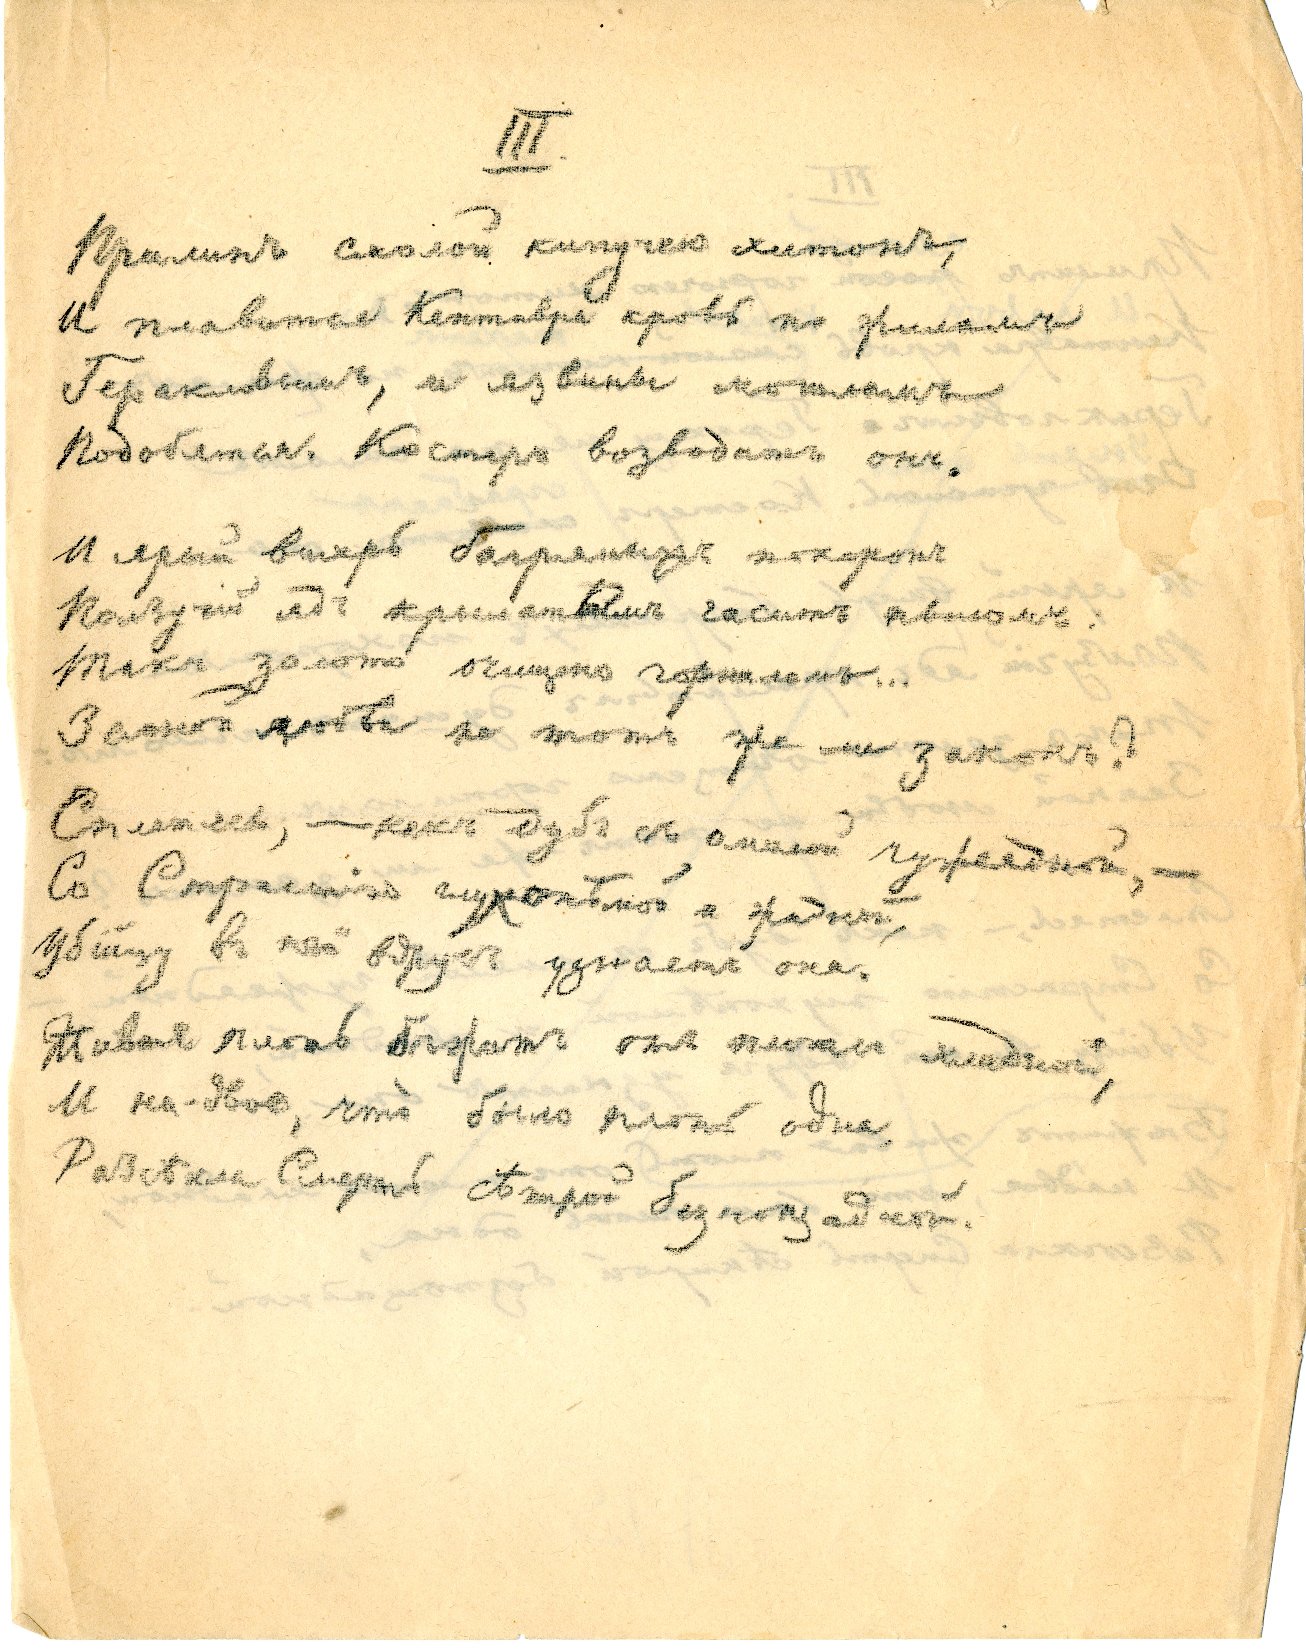 III.
Прилипъ смолой кипучею хитонъ,
И плавится Кентавра кровь по жиламъ
Геракловымъ, и язвины могиламъ
Подобятся. Костеръ возводитъ онъ.
И ярый вихрь багряницъ похоронъ
Ползучій ядъ крылатымъ гаситъ пыломъ:
Такъ золото очищено горниломъ...
Земной любви не тотъ же ли законъ?
Сплетясь, — какъ дубъ съ омелой чужеядной, —
Со Страстію глухонѣмой и жадной,
Убійцу въ ней вдругъ узнаетъ она.
Живая плоть бѣжитъ отъ плоти хладной,
И на-двое, что было плоть одна,
Разсѣкла Смерть сѣкирой безпощадной.